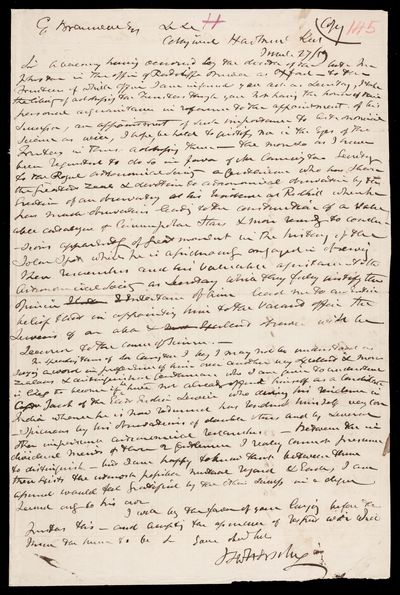 (Copy) 145
G. Bramwell Esq
Collingwood Hawkhurst Kent
A vacancy having occurred by the decease of the late Mr
Johnson in the office of Radcliffe Observer at Oxford - to the
Trustees of which office I am informed you act as Secretary, I take
the liberty of addressing the Trustees through you not having the honour of their
personal acquaintance in reference to the appointment of his
Successor, an appointment of such importance to Astronomical
Science as will, I hope be held to justify me in the eyes of the
Trustees in thus addressing them - the more so as I have
been requested to do so in favour of Mr Carrington Secretary
to the Royal Astronomical Society a Gentleman who has shown
the greatest zeal & devotion to astronomical observation by the
erection of an observatory at his residence at Redhill where he
has made observations leading to the construction of a valuable
catalogue of Circumpolar Stars & more recently to conclusions
apparently of great moment in the history of the
Solar Spots which he is assiduously engaged in observing
These researches and his valuable assistance to the
Astronomical Society as Secretary while they fully justify the
opinion I entertain of him lead me to an entire
belief that in appointing him to the vacant office the
services of an able & excellent observer will be
secured to the cause of Science.
In speaking thus of Mr Carrington I beg I may not be understood as
saying a word in preference of him over another very excellent & most
zealous & distinguished Gentleman who I am given to understand
is likely to become if he have not already offered himself as a Candidate
Capn Jacob of the East India Service who during his residence in
India where he is now returned has rendered himself very conspicuous
by his observations of double stars and by several
other important astronomical researches - Between the individual
merits of these two Gentlemen I really cannot presume
to distinguish - and I am happy to know that between them
there exists the utmost possible mutual regard & each, I am
assured would feel gratified by the other's success in a degree
second only to his own
I will beg the favour of your laying before the
Trustees this - and accept the assurance of respect with which
I have the honor to be &
J F W Herschel